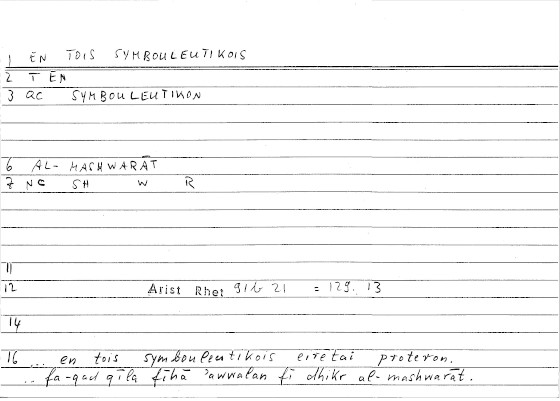 1 EN TOIS SYMBOULEUTIKOIS
2 T EN
3 QC SYMBOULEUTIKON
6 AL- MASHWARĀT
7 NC SH W R
11
12 Arist Rhet 916 21 = 129. 13
14
16 ... en tois symbouleutikois eirētai proteron.
.. fa-qad qīla fīhā 'awwalan fī dhikr al-mashwarāt.